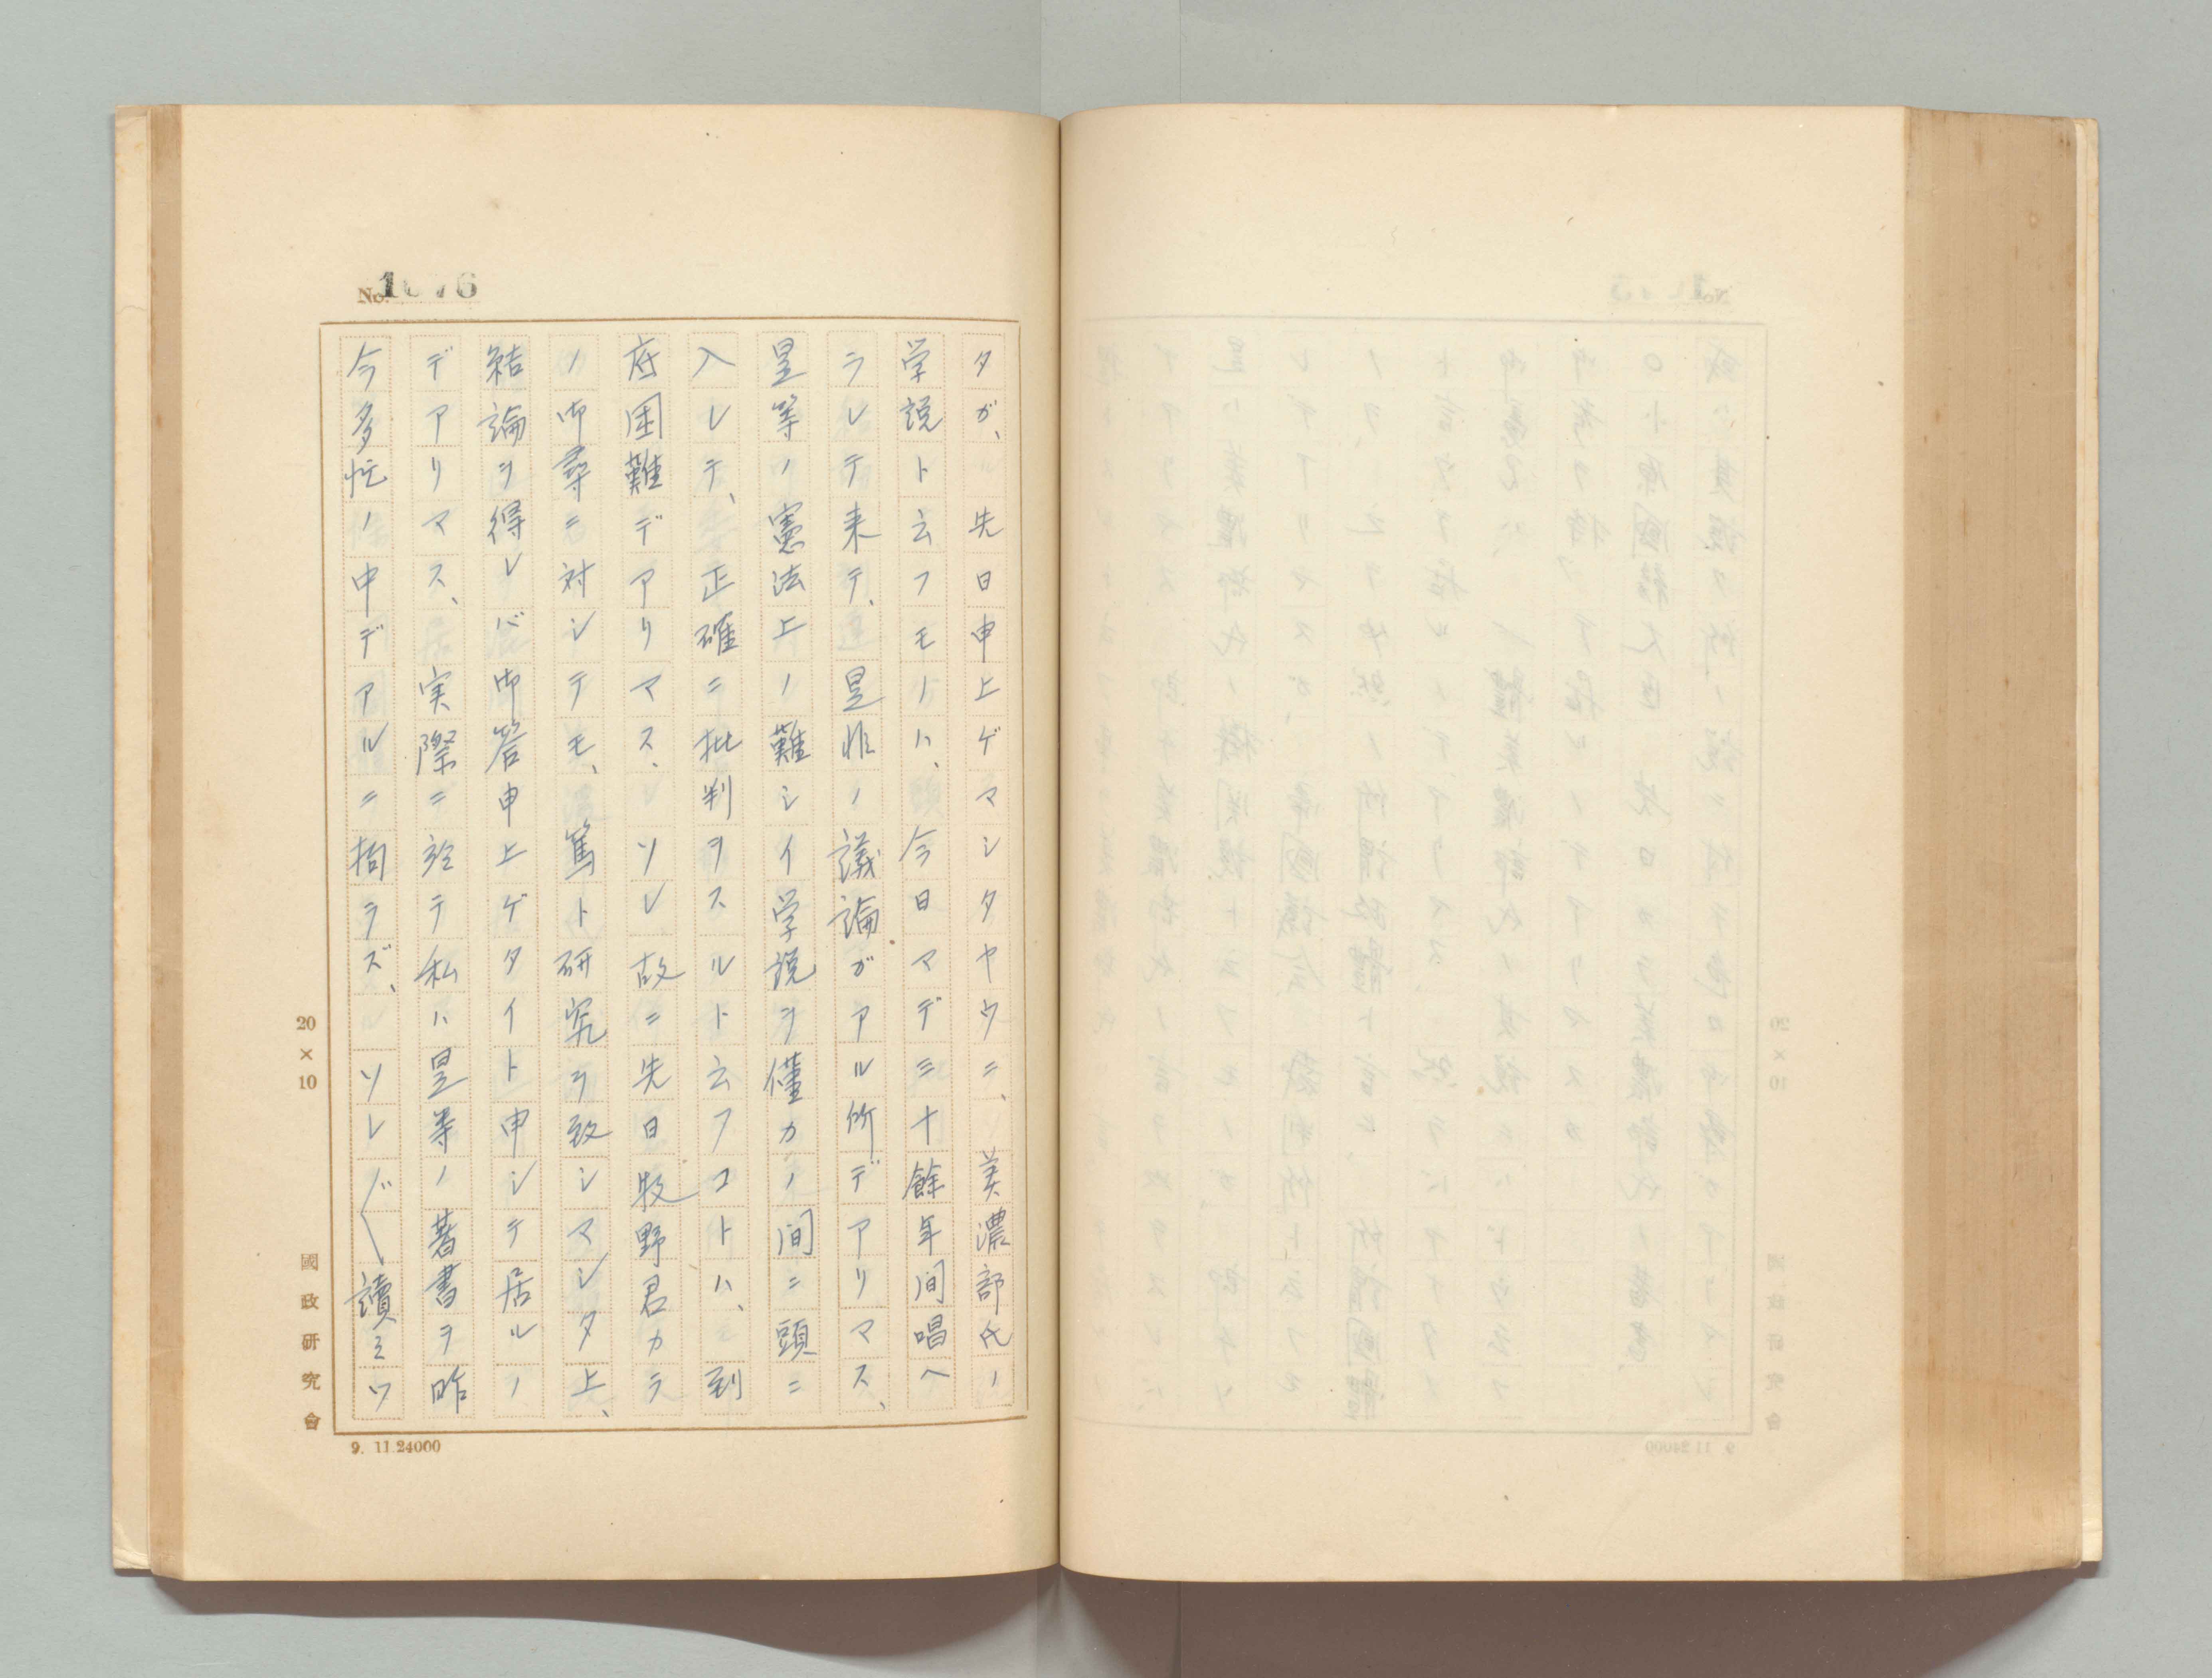 No. 1076
タガ、先日申上ゲマシタヤウニ、美濃部氏ノ
学説ト云フモノハ、今日マデ三十餘年间唱ヘ
ラレテ来テ、是非ノ議論ガアル所デアリマス、
是等ノ憲法上ノ難シイ学説ヲ僅カノ间ニ頭ニ
入レテ、正確ニ批判ヲスルト云フコトハ、到
底困難デアリマス、ソレ故ニ先日牧野君カラ
ノ御尋ニ対シテモ、篤ト研究ヲ致シマシタ上、
結論ヲ得レバ御答申上ゲタイト申シテ居ルノ
デアリマス、実際ニ於テ私ハ是等ノ著書ヲ昨
今多忙ノ中デアルニ拘ラズ、ソレ〲讀ミツ
20×10
國政研究會
9. 11.24000